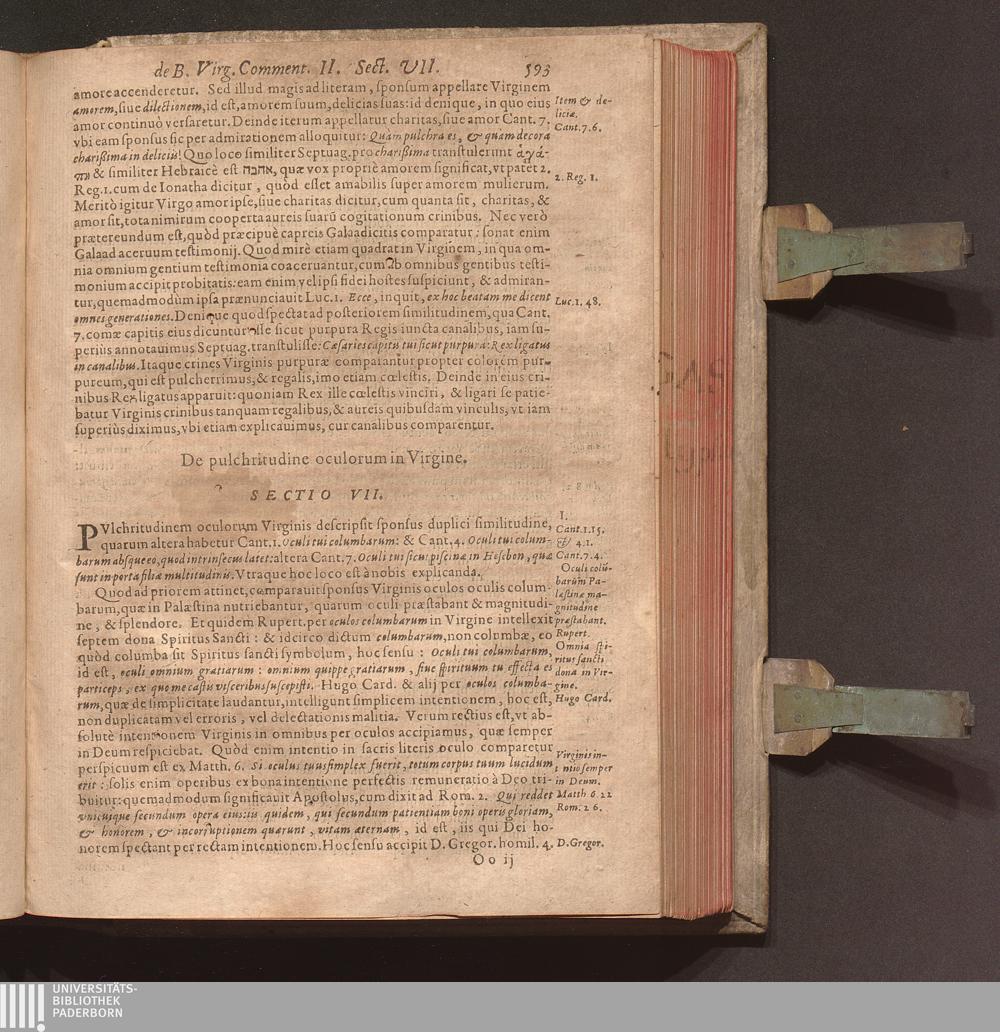 de B. Virg. Comment. II. Sect. VII. 593
amore accenderetur. Sed illud magis ad literam, sponsum appellare Virginem
amorem, siue dilectionem, id est, amorem suum, delicias suas: id denique, in quo eius
amor continuò versaretur. Deinde iterum appellatur charitas, siue amor Cant. 7.
vbi eam sponsus sic per admirationem alloquitur: Quàm pulchra es, & quàm decora
charißima in deliciis! Quo loco similiter Septuag. pro charißima transtulerunt ἀγά-
πη & similiter Hebraicè est אהבה, quæ vox propriè amorem significat, vt patet 2.
Reg. 1. cum de Ionatha dicitur, quòd esset amabilis super amorem mulierum.
Meritò igitur Virgo amor ipse, siue charitas dicitur, cum quanta sit, charitas, &
amor sit, tota nimirum cooperta aureis suarū cogitationum crinibus. Nec verò
prætereundum est, quòd præcipuè capreis Galaadicitis comparatur: sonat enim
Galaad aceruum testimonij. Quod mirè etiam quadrat in Virginem, in qua om-
nia omnium gentium testimonia coaceruantur, cum ab omnibus gentibus testi-
monium accipit probitatis: eam enim vel ipsi fidei hostes suspiciunt, & admiran-
tur, quemadmodùm ipsa prænunciauit Luc. 1. Ecce, inquit, ex hoc beatam me dicent
omnes generationes. Denique quod spectat ad posteriorem similitudinem, qua Cant.
7. comæ capitis eius dicuntur esse sicut purpura Regis iuncta canalibus, iam su-
periùs annotauimus Septuag. transtulisse: Cæsaries capitis tui sicut purpura: Rex ligatus
in canalibus. Itaque crines Virginis purpuræ comparantur propter colorem pur-
pureum, qui est pulcherrimus, & regalis, imo etiam cœlestis. Deinde in eius cri-
nibus Rex ligatus apparuit: quoniam Rex ille cœlestis vinciri, & ligari se patie-
batur Virginis crinibus tanquam regalibus, & aureis quibusdam vinculis, vt iam
superiùs diximus, vbi etiam explicauimus, cur canalibus comparentur.
Item & de-
liciæ.
Cant. 7. 6.
2. Reg. 1.
Luc. 1. 48.
De pulchritudine oculorum in Virgine.
SECTIO VII.
PVlchritudinem oculorum Virginis descripsit sponsus duplici similitudine,
quarum altera habetur Cant. 1. Oculi tui columbarum: & Cant. 4. Oculi tui colum-
barum absque eo, quod intrinsecus latet: altera Cant. 7. Oculi tui sicut piscinæ in Hesebon, quæ
sunt in porta filiæ multitudinis. Vtraque hoc loco est à nobis explicanda.
Quod ad priorem attinet, comparauit sponsus Virginis oculos oculis colum-
barum, quæ in Palæstina nutriebantur, quarum oculi præstabant & magnitudi-
ne, & splendore. Et quidem Rupert. per oculos columbarum in Virgine intellexit
septem dona Spiritus Sancti: & idcirco dictum columbarum, non columbæ, eo
quòd columba sit Spiritus sancti symbolum, hoc sensu: Oculi tui columbarum,
id est, oculi omnium gratiarum: omnium quippe gratiarum, siue spirituum tu effecta es
particeps, ex quo me castis visceribus suscepisti. Hugo Card. & alij per oculos columba-
rum, quæ de simplicitate laudantur, intelligunt simplicem intentionem, hoc est,
non duplicatam vel erroris, vel delectationis malitia. Verum rectius est, vt ab-
solutè intentionem Virginis in omnibus per oculos accipiamus, quæ semper
in Deum respiciebat. Quòd enim intentio in sacris literis oculo comparetur
perspicuum est ex Matth. 6. Si oculus tuus simplex fuerit, totum corpus tuum lucidum
erit: solis enim operibus ex bona intentione perfectis remuneratio à Deo tri-
buitur: quemadmodum significauit Apostolus, cum dixit ad Rom. 2. Qui reddet
vnicuique secundum opera eius: iis quidem, qui secundum patientiam boni operis gloriam,
& honorem, & incorruptionem quærunt, vitam æternam, id est, iis qui Dei ho-
norem spectant per rectam intentionem. Hoc sensu accipit D. Gregor. homil. 4.
Oo ij
I.
Cant. 1. 15.
& 4. 1.
Cant. 7. 4.
Oculi colū-
barum Pa-
læstinæ ma-
gnitudine
præstabant.
Rupert.
Omnia spi-
ritus sancti
dona in Vir-
gine.
Hugo Card.
Virginis in-
tentio semper
in Deum.
Matth 6. 22
Rom. 2 6.
D. Gregor.
UNIVERSITÄTS-
BIBLIOTHEK
PADERBORN